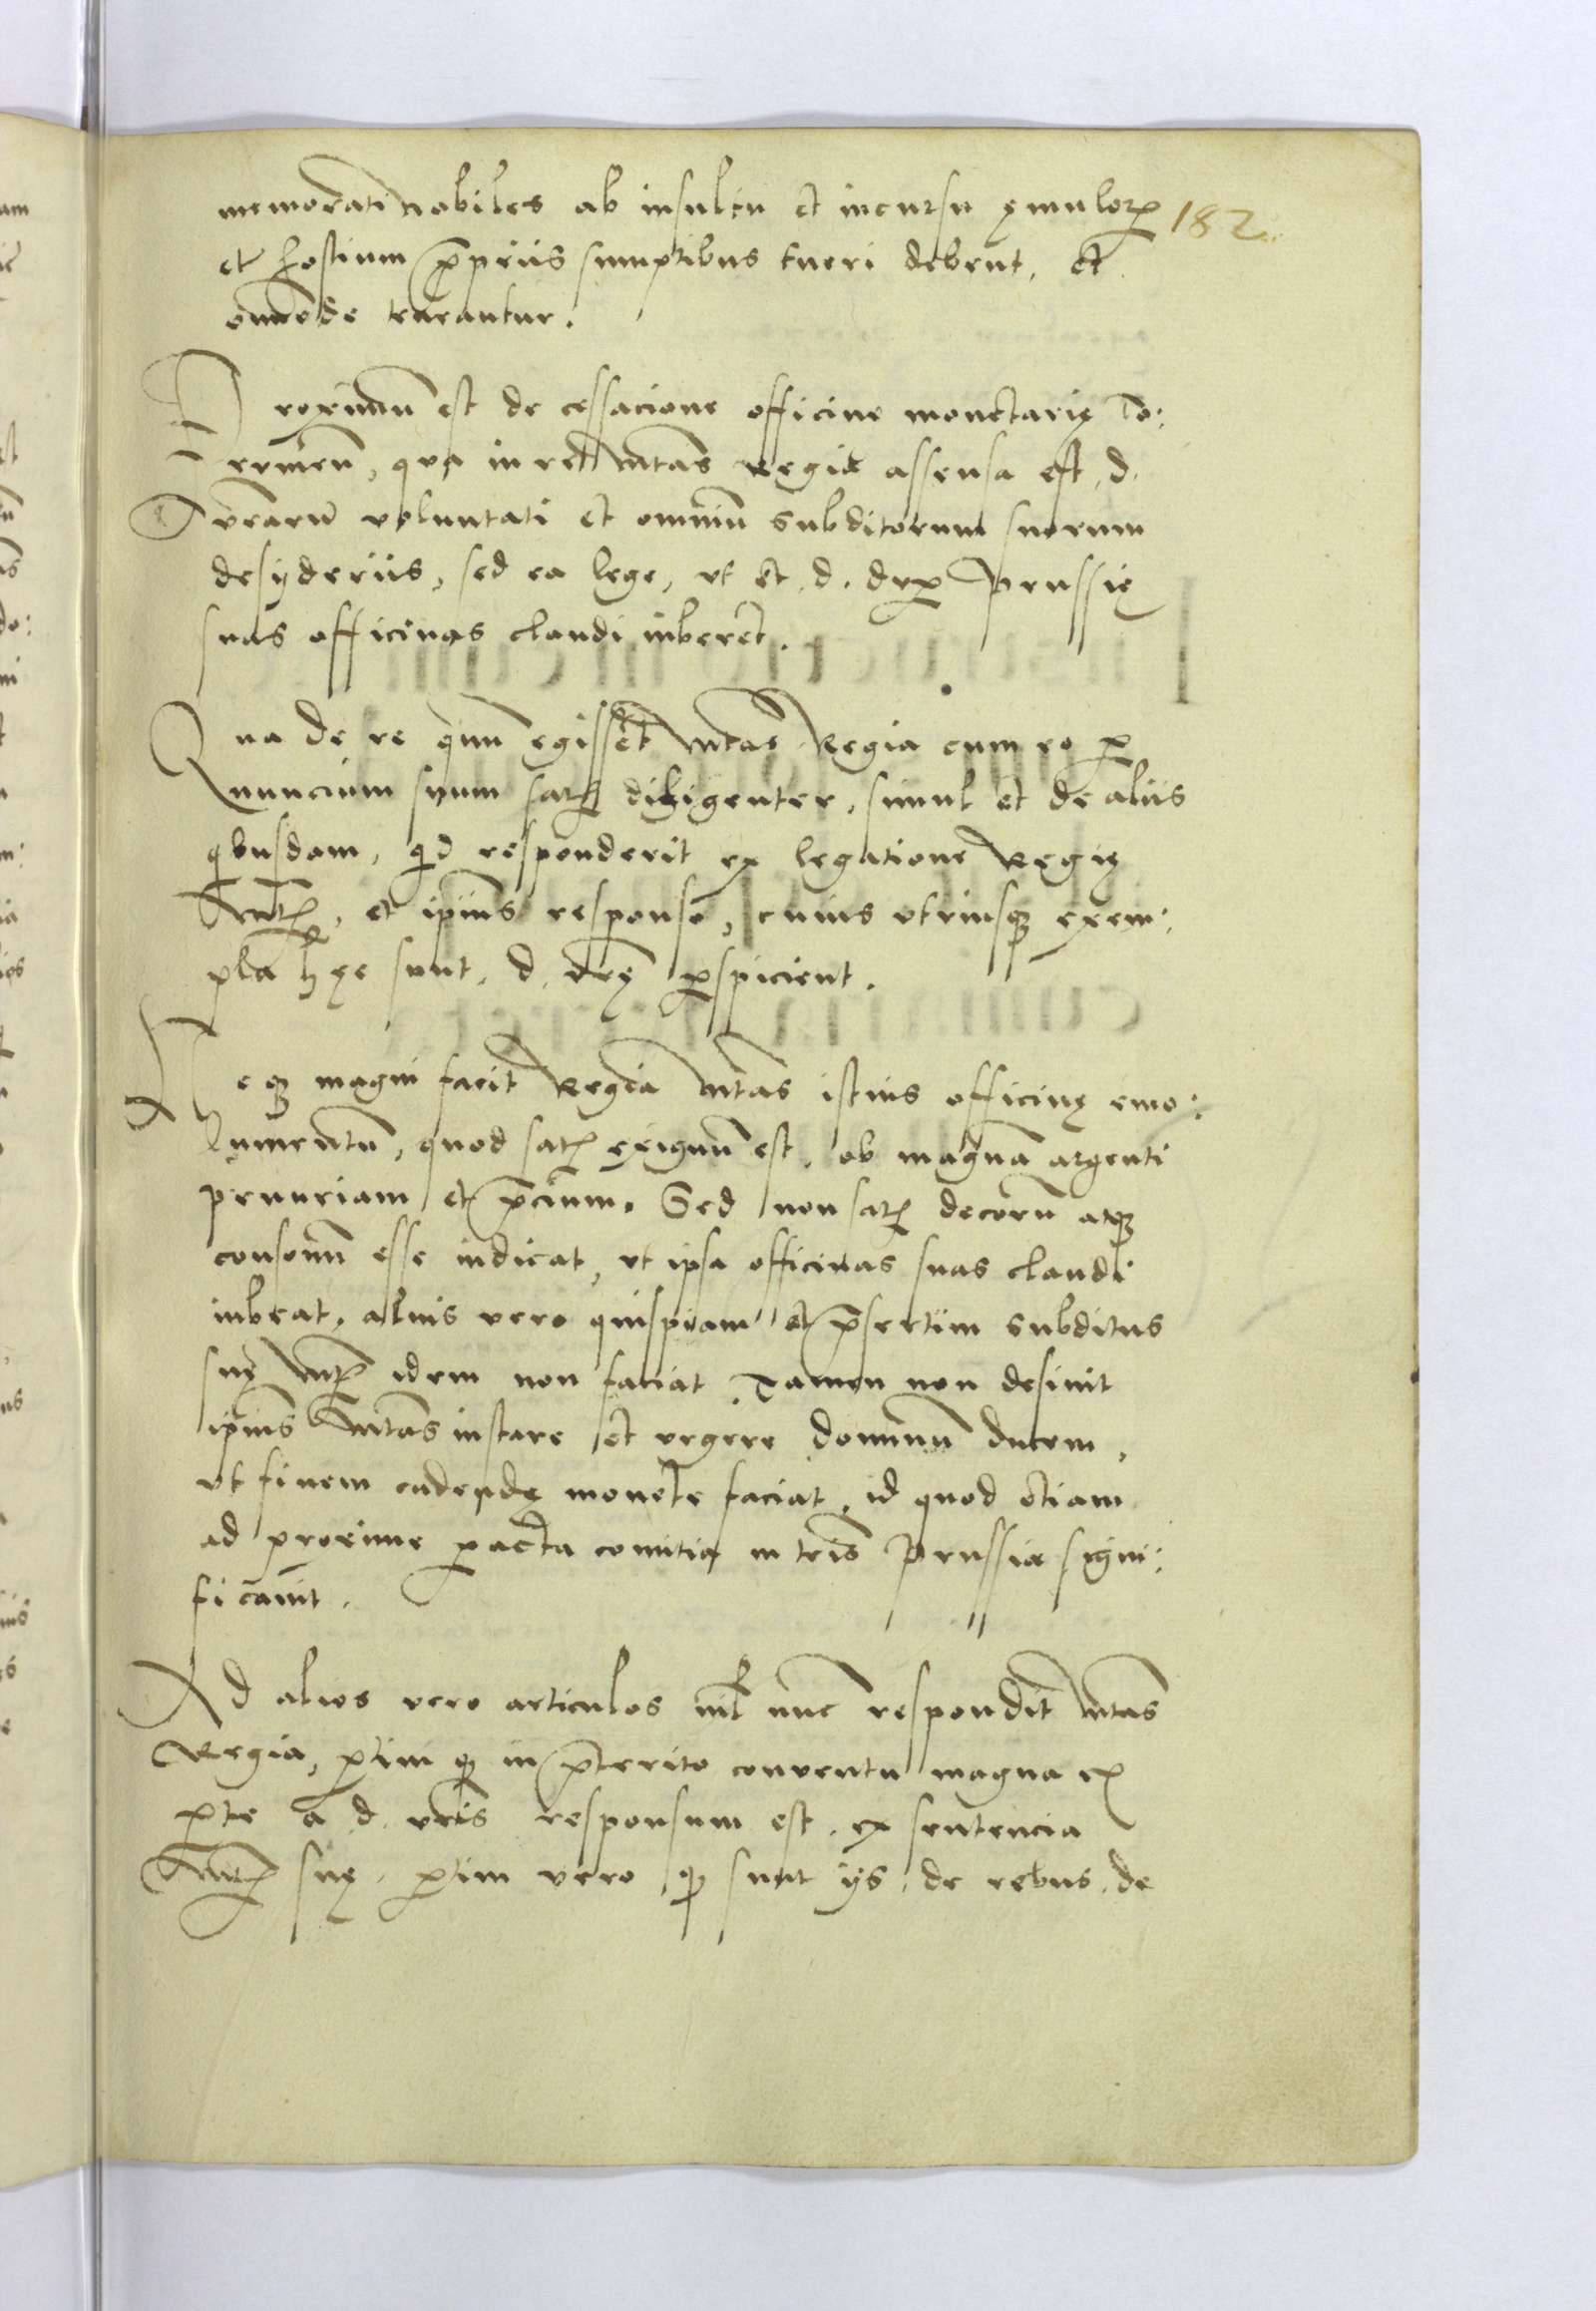 memorati nobiles ab insultu et incursu ęmuloꝝ 182
et hostium ꝓpriis sumptibus tueri debent, et
omnĩode teneantur.
Proximũ est de cessacione officine monetarię To:
runieñ, qua in re Mtas Regie assensa est, d.
vrarũ voluntati et omniũ subditorum suorum
desyderiis, sed ea lege, vt et d. dux Prussię
suas officinas claudi iuberet.
Qua de re quũ egisset Mtas Regia cum eo ꝑ
nuncium suum satis diligenter, simul et de aliis
qbusdam, qd responderit ex legatione Regię
Mtis, et ipius responso, cuius vtriusqꝫ exem:
pla hęc sunt, d. vrę ꝑspicient.
Neqꝫ magni facit Regia Mtas istius officinę emo:
lumentũ, quod satis exiguũ est, ob magnã argenti
penuriam et p̃cium. Sed non satis decorũ atqꝫ
consonũ esse iudicat, vt ipsa officinas suas claudi
iubeat, alius vero quispiam et p̃sertim subditus
suę Mtis idem non faciat. Tamen non desinit
ipius Mtas instare et vrgere dominũ ducem,
vt finem cudendę monete faciat, id quod etiam
ad proxime ꝑacta comitia in tris Prussie signi:
ficauit.
Ad alios vero articulos nil nunc respondit Mtas
Regia, ꝑtim qꝫ in p̃terito conuentu magna ex
ꝑte a d. vris responsum est, ex sentencia
Mtis suę, ꝑtim vero qꝫ sunt ijs de rebus, de